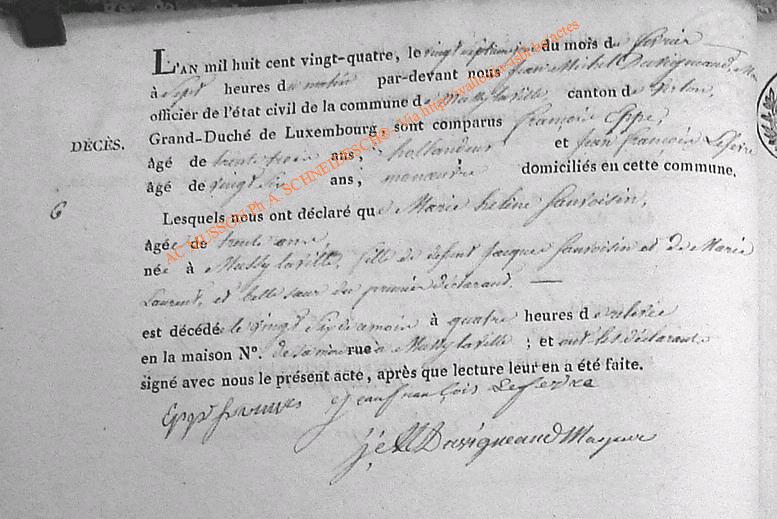 L'AN mil huit cent vingt-quatre, le vingt septieme du mois de fevrier
à sept heures du matin par-devant nous Jean Michel Duvigneaud, Ma
officier de l'état civil de la commune de Mussy la ville canton de Virton,
Grand-Duché de Luxembourg, sont comparus francois Eppe,
DÉCÈS.
âgé de trente trois ans, hollandeur et Jean francois Lefevre
âgé de vingt six ans; manœuvre domiciliés en cette commune.
6
Lesquels nous ont déclaré que Marie helene Sauvoisin,
âgée de trente ans
née à Mussy la ville, fille de defunt Jacque Sauvoisin et de Marie
Laurent, et belle sœur du premier déclarant. —
est décédée le vingt six de ce mois à quatre heures de relevée
en la maison N°. de sa mère rue à Mussy la ville ; et ont les déclarants
signé avec nous le présent acte, après que lecture leur en a été faite.
Epp jean francois Lefevre
J. M Duvigneaud Mayeur
AC MUSSON Ph A. SCHNEIDESCH - Via http://wallonie-asbl.be/actes